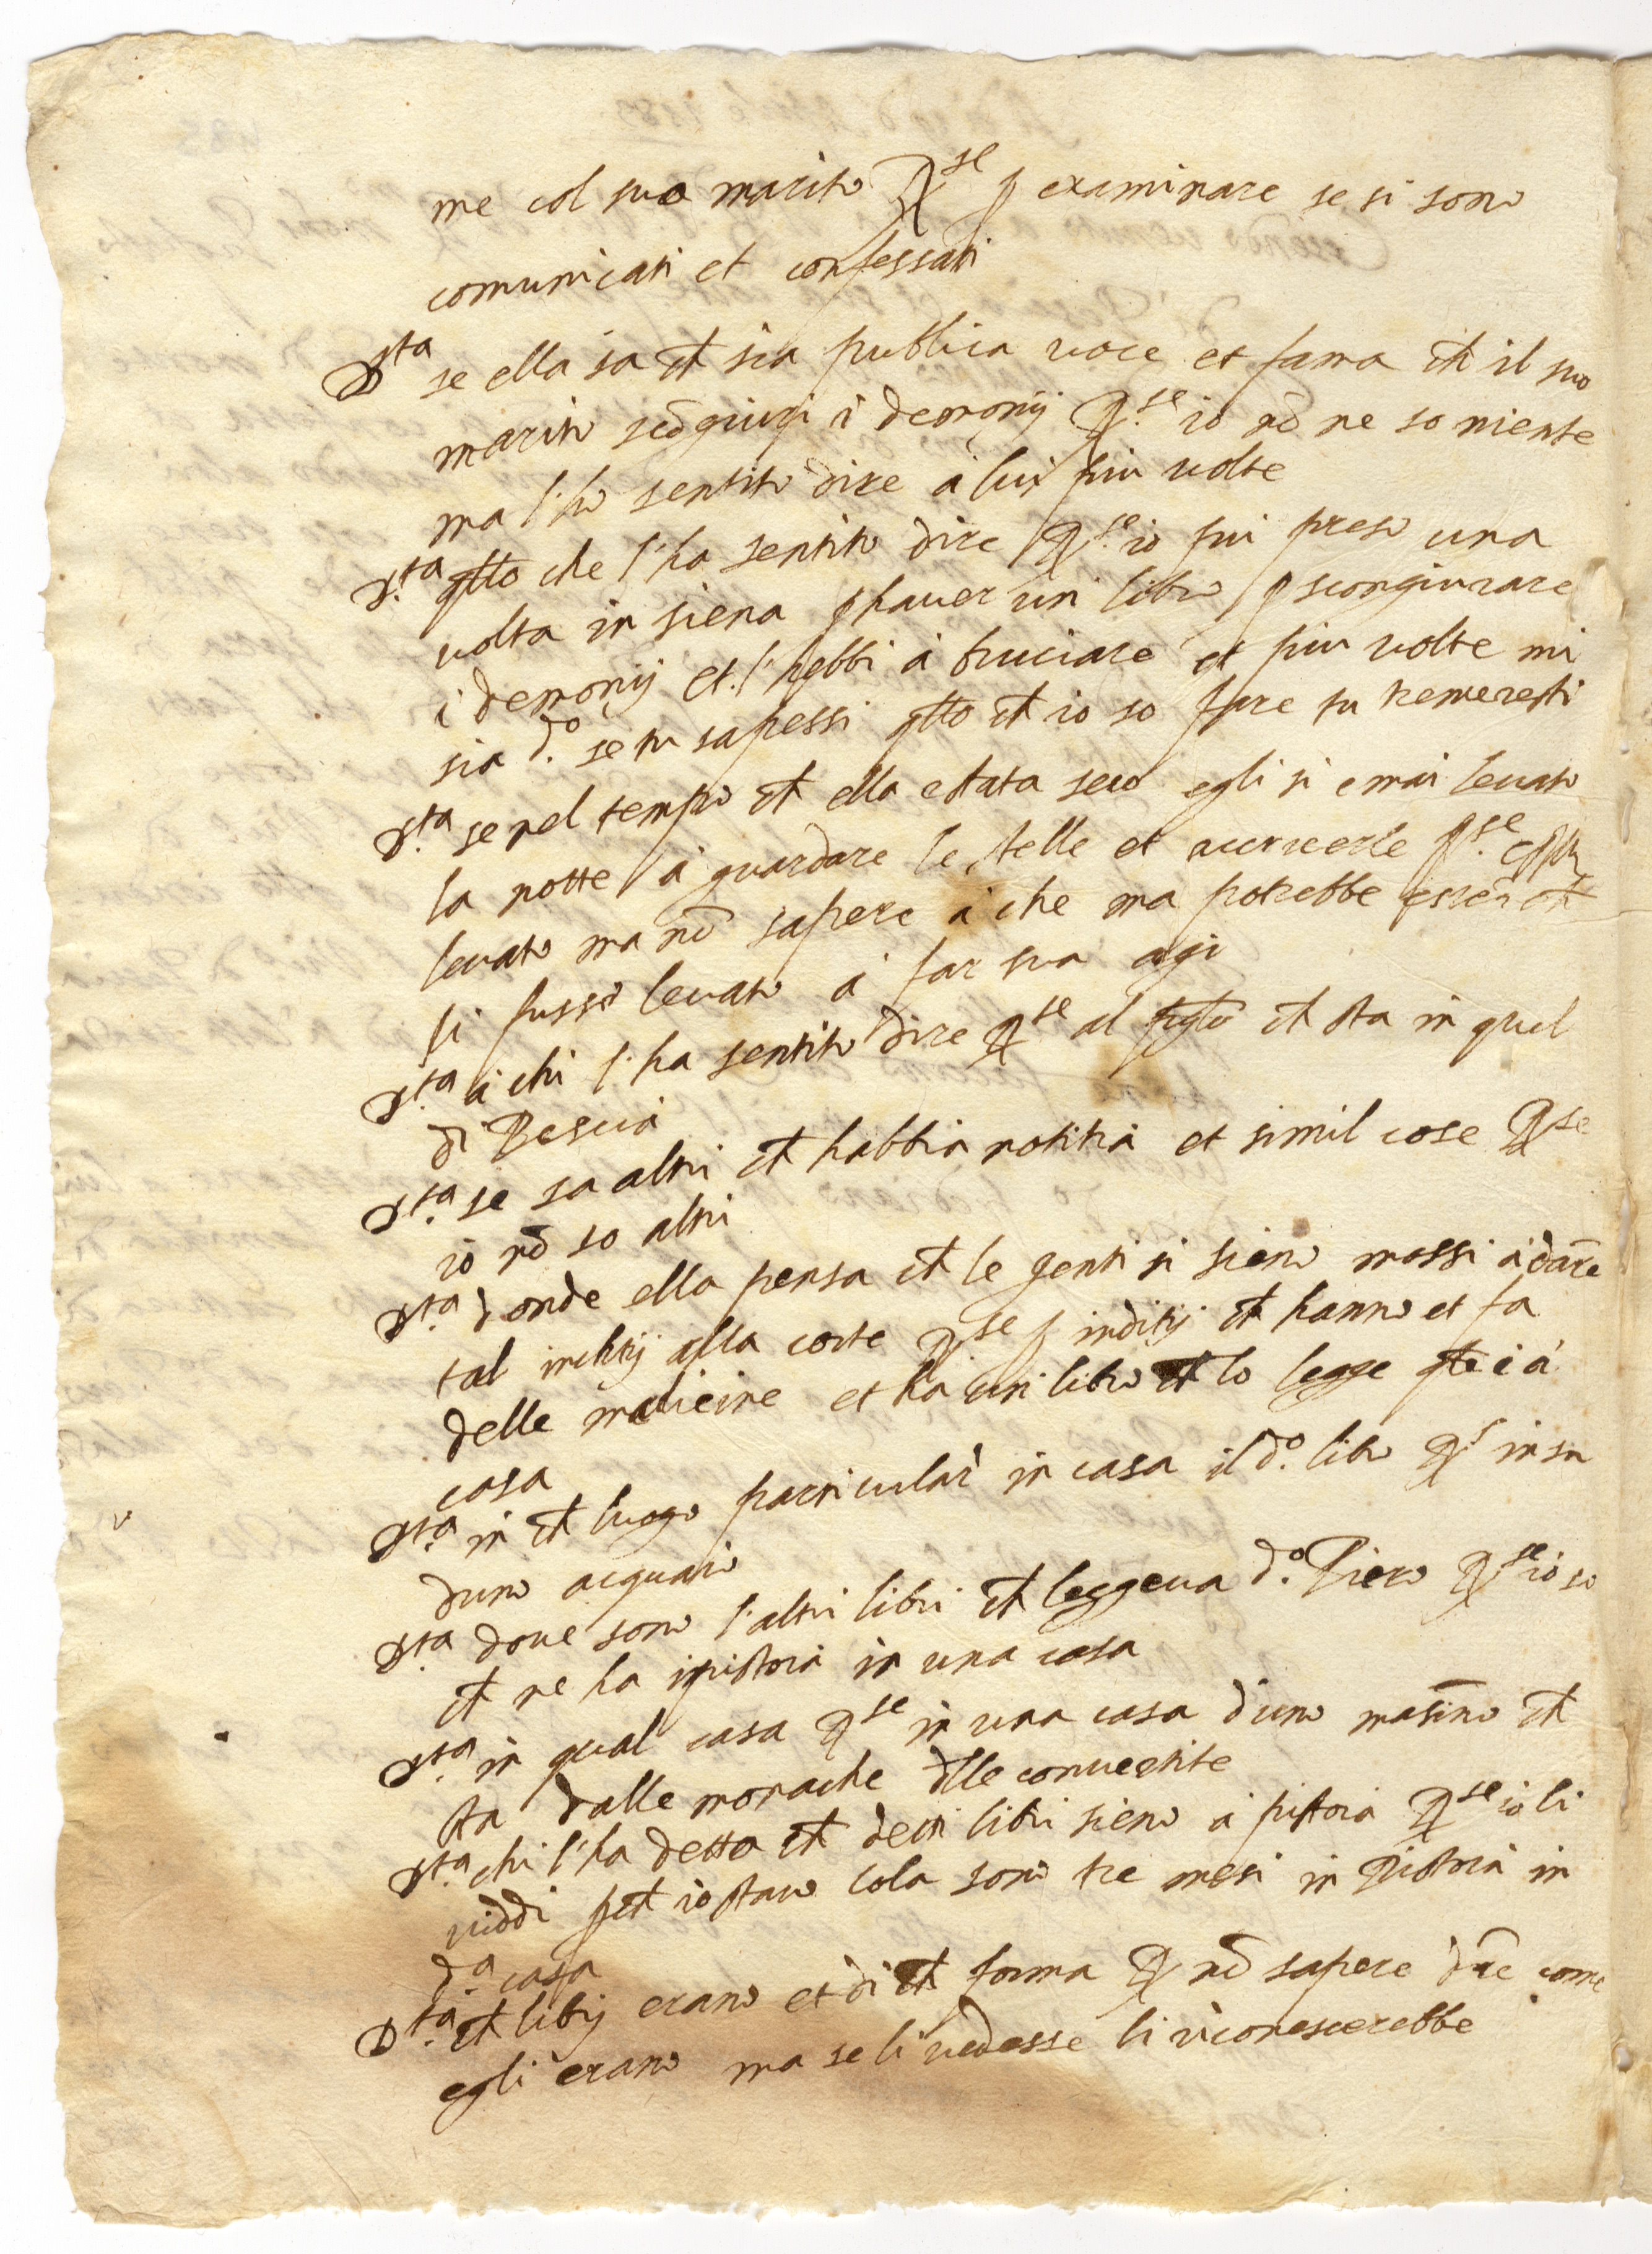 me col suo marito Rse p examinare se si sono
comunicati et confessati
Dta se ella sa ch sia publica voce et fama ch il suo
marito scōgiuri i demonij Rse io nō ne so niente
ma l'ho sentito dire à lui piu volte
Dta qto che l'ha sentito dire Rse io fui preso una
volta in siena p haver un libro p scongiurare
i demonij et l'hebbi à bruciare et piu volte mi
sia do. se tu sapessi qto ch io so fare tu temeresti
Dta se nel tempo ch ella è stata seco egli si è mai levato
la notte à guardare le stelle et Rse
levato ma nō sapere à che ma potrebbe essere ch
si fusse levato à far sua agi
Dta à chi l'ha sentito dire Rse al ch sta in quel
di Pescia
Dta se sa altri ch habbia notitia et simil cose Rse
io nō so altri
Dta donde ella pensa ch le genti si sieno mossi à dare
tal inditij alla corte Rse p inditij ch hanno et fa
delle medicine et ha un libro ch lo legge à
casa
Dta in ch luogo particular in casa il do. libro Rs in su
duno acquaio
Dta dove sono l'altri libri ch leggeva do. Piero Rse io so
ch ne ha ipistoia in una casa
Dta in qual casa Rse in una casa d'uno ch
sta dalle monache dlle convertite
Dta chi l'ha detto ch detti libri sieno à pistoia Rse io li
viddi pch io stavo cola sono tre mesi in Pistoia in
da casa
Dta ch librij erano et di ch forma R nō sapere dire come
egli erano ma se li vedesse li riconoscerebbe